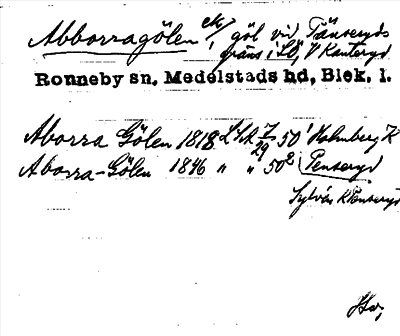 Abborragölen ek, göl vid Tänseryds
gräns i SÖ, V Kanteryd
Ronneby sn, Medelstads hd, Blek. l.
Aborra Gölen 1818 LSA 50¹ Holmberg K
29
Aborra-Gölen 1846 " " 50² Penseryd
Sylvés K Penseryd